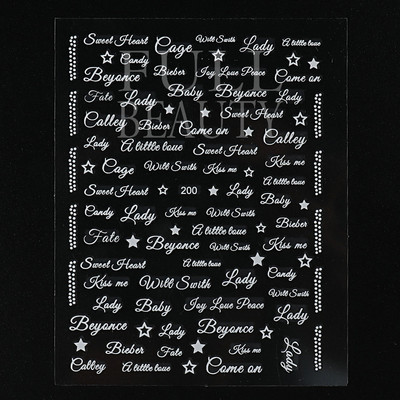 Sweet Heart Cage Will Swith Lady A little love
Candy
Beyonce Bieber Joy Love Peace Come on
FULL BEAUTY
Fate Lady Baby Beyonce Lady
Calley Bieber Come on Sweet Heart Calley
Lady A little love Sweet Heart Kiss me
Cage Will Swith Kiss me A little love
Sweet Heart 200 Lady Baby
Candy Lady Kiss me Will Swith Bieber
Fate Beyonce A little love Will Swith Kiss me
Sweet Heart A little love Candy
Kiss me Will Swith Lady Will Swith
Lady Baby Joy Love Peace Lady
Beyonce Lady Beyonce Lady
Bieber Fate Kiss me
Calley A little love Come on